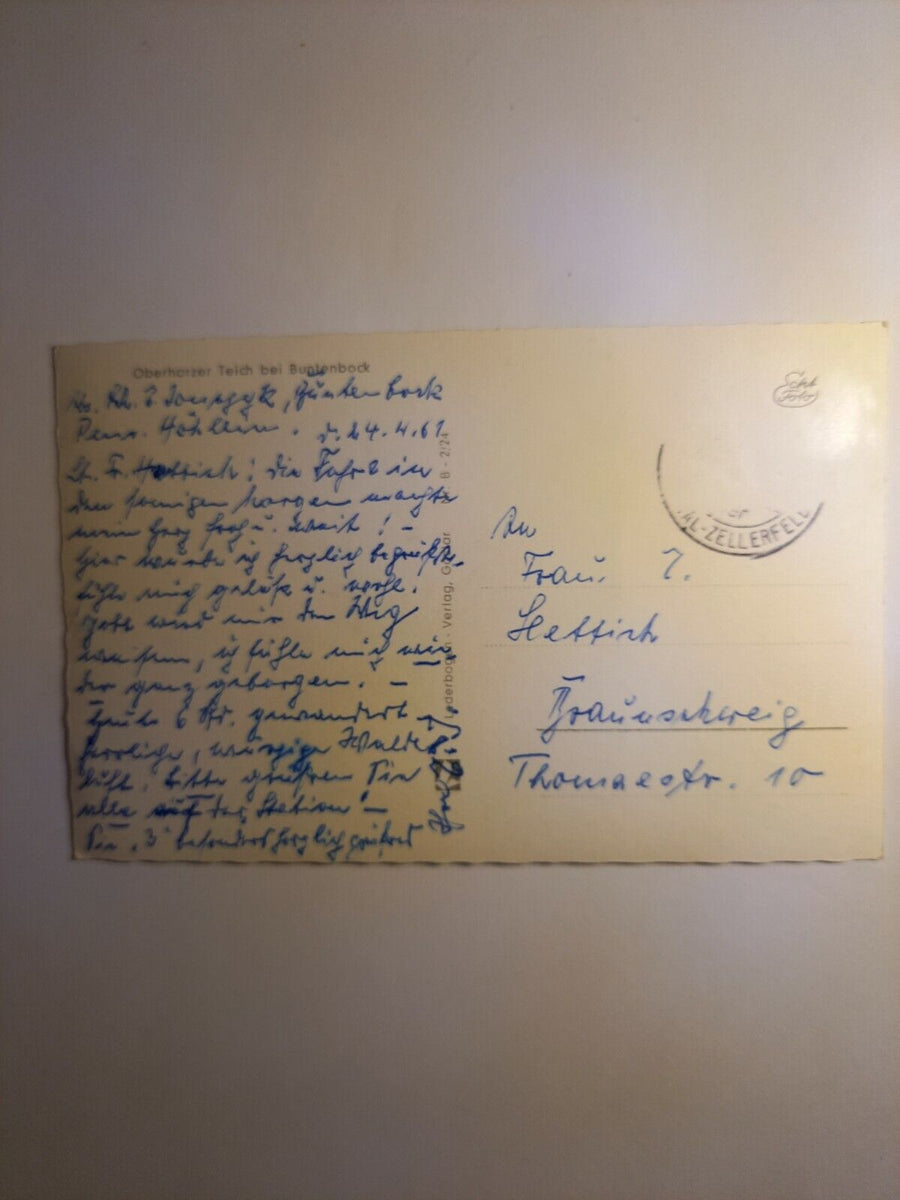 Oberharzer Teich bei Buntenbock
Buntenbock
Pens. d. 24.4.61
Fr. Hettich! Die Fahrt in
den sonnigen Morgen machte
mein Herz froh u. weit! –
Hier wurde ich herzlich begrüßt,
fühle mich gelöst u. wohl.
Gott wird mir den Weg
weisen, ich fühle mich wie
der ganz geborgen. –
Heute 6 Std. gewandert
herrliche, würzige Wald
luft. Bitte grüßen Sie
alle auf der Station! –
Sie "3" besonders herzlich grüßend
Verlag, Goslar
B - 2/24
Echt
Foto
AL-ZELLERFELD
An
Frau J.
Hettich
Braunschweig
Thomaestr. 10